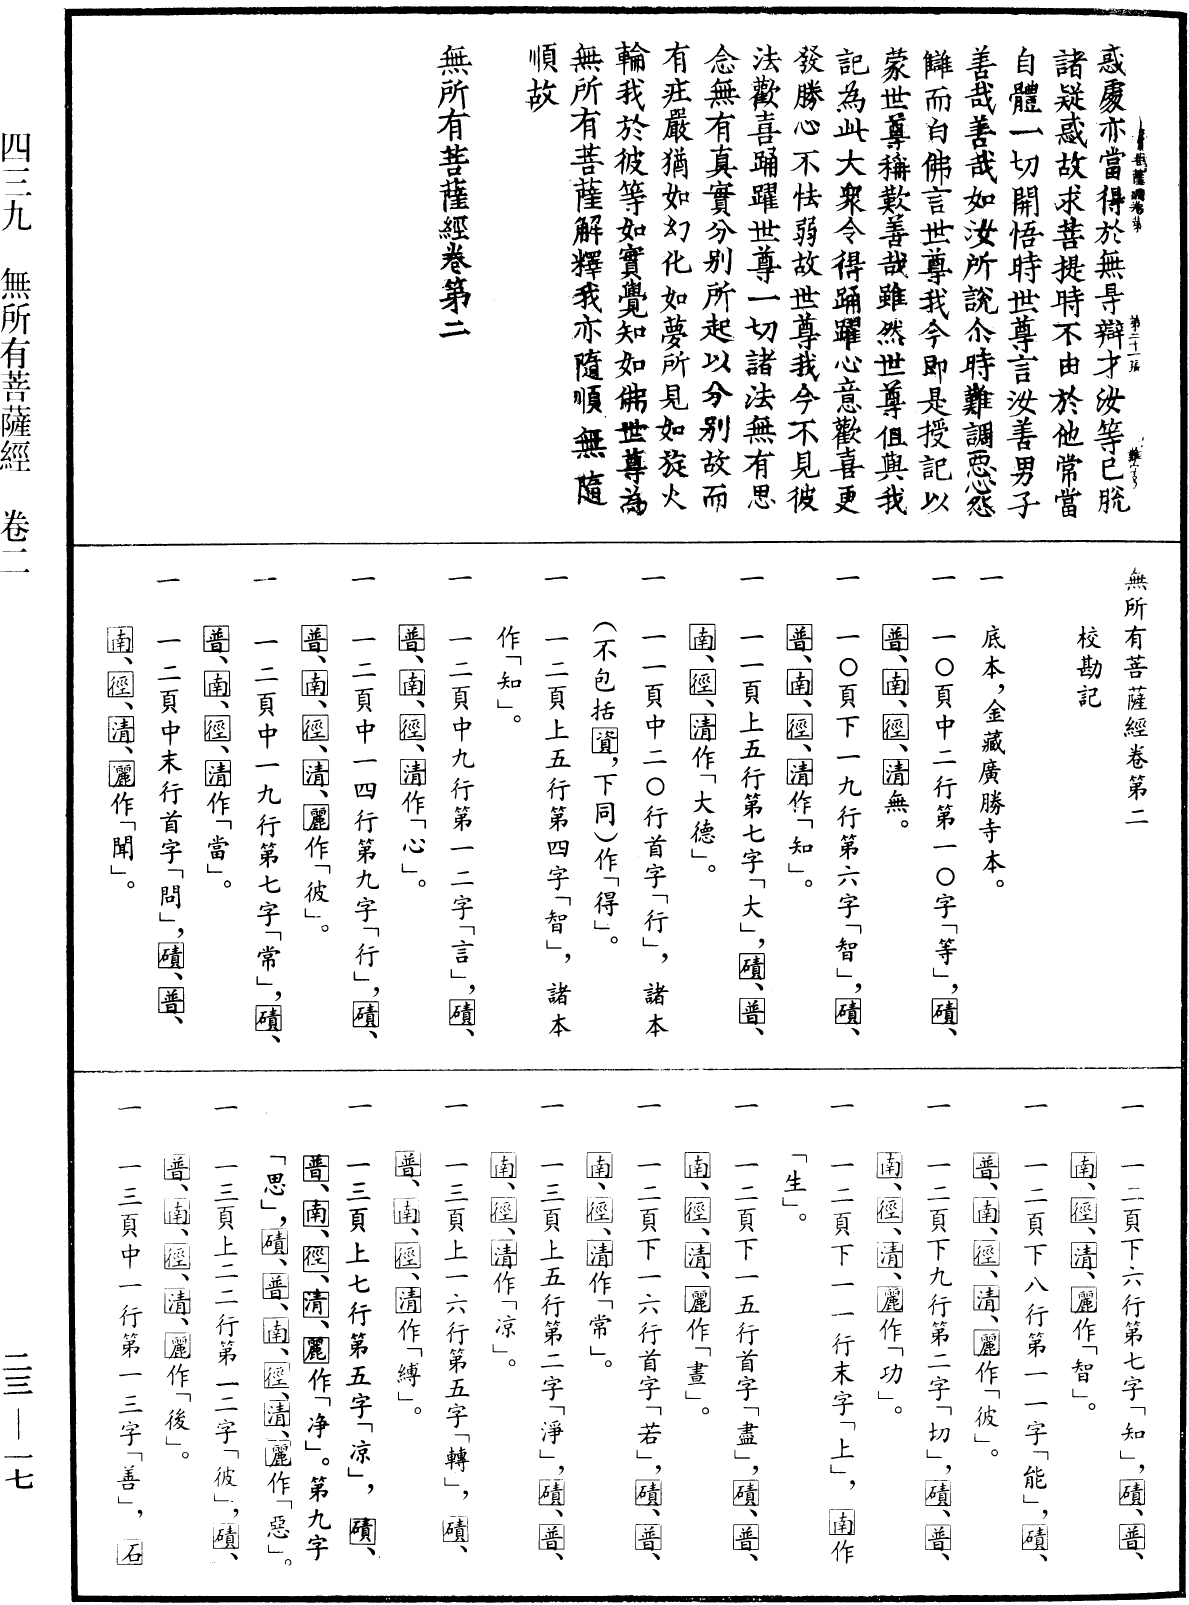 惑處亦當得於無㝵辯才汝等已脫
諸疑惑故求菩提時不由於他常當
自體一切開悟時世尊言汝善男子
善哉善哉如汝所說尒時難調惡怨
讎而白佛言世尊我今即是授記以
蒙世尊稱歎善哉雖然世尊但與我
記為此大衆令得踊躍心意歡喜更
發勝心不怯弱故世尊我今不見彼
法歡喜踊躍世尊一切諸法無有思
念無有真實分別所起以分別故而
有莊嚴猶如幻化如夢所見如旋火
輪我於彼等如實覺知如佛世尊為
無所有菩薩解釋我亦隨順無隨
順故
無所有菩薩經卷第二
無所有菩薩經卷第二
校勘記
一　底本，金藏廣勝寺本。
一　一〇頁中二行第一〇字「等」，磧、
普、南、徑、清無。
一　一〇頁下一九行第六字「智」，磧、
普、南、徑、清作「知」。
一　一一頁上五行第七字「大」，磧、普、
南、徑、清作「大德」。
一　一一頁中二〇行首字「行」，諸本
（不包括資，下同）作「得」。
一　一二頁上五行第四字「智」，諸本
作「知」。
一　一二頁中九行第一二字「言」，磧、
普、南、徑、清作「心」。
一　一二頁中一四行第九字「行」，磧、
普、南、徑、清、麗作「彼」。
一　一二頁中一九行第七字「常」，磧、
普、南、徑、清作「當」。
一　一二頁中末行首字「問」，磧、普、
南、徑、清、麗作「聞」。
一　一二頁下六行第七字「知」，磧、普、
南、徑、清、麗作「智」。
一　一二頁下八行第一一字「能」，磧、
普、南、徑、清、麗作「彼」。
一　一二頁下九行第二字「切」，磧、普、
南、徑、清、麗作「功」。
一　一二頁下一一行末字「上」，南作
「生」。
一　一二頁下一五行首字「盡」，磧、普、
南、徑、清、麗作「晝」。
一　一二頁下一六行首字「若」，磧、普、
南、徑、清作「常」。
一　一三頁上五行第二字「淨」，磧、普、
南、徑、清作「凉」。
一　一三頁上一六行第五字「轉」，磧、
普、南、徑、清作「縛」。
一　一三頁上七行第五字「凉」，磧、
普、南、徑、清、麗作「净」。第九字
「思」，磧、普、南、徑、清、麗作「惡」。
一　一三頁上二二行第一二字「彼」，磧、
普、南、徑、清、麗作「後」。
一　一三頁中一行第一三字「善」，石
四三九　無所有菩薩經　卷二
二三—一七